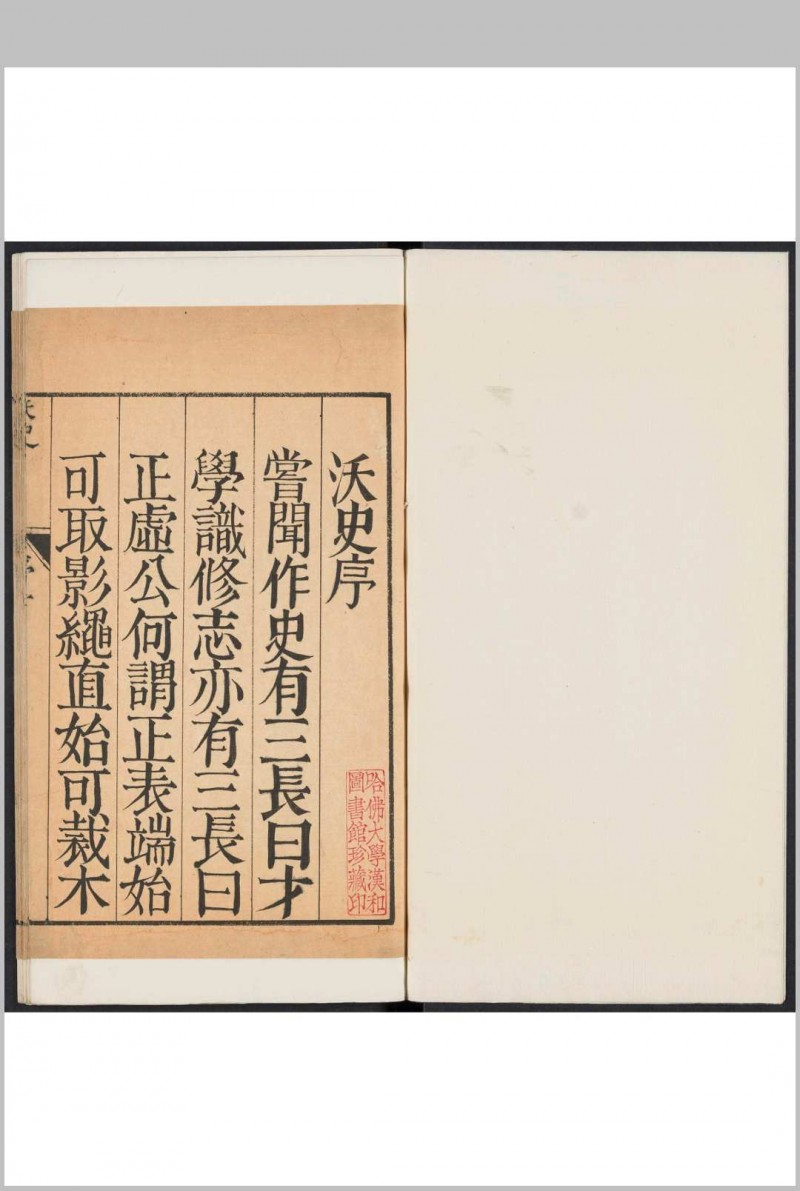 沃史序
嘗聞作史有三長曰才
學識修志亦有三長曰
正虛公何謂正表端始
可取影繩直始可裁木
哈佛大學漢和
圖書館珍藏印